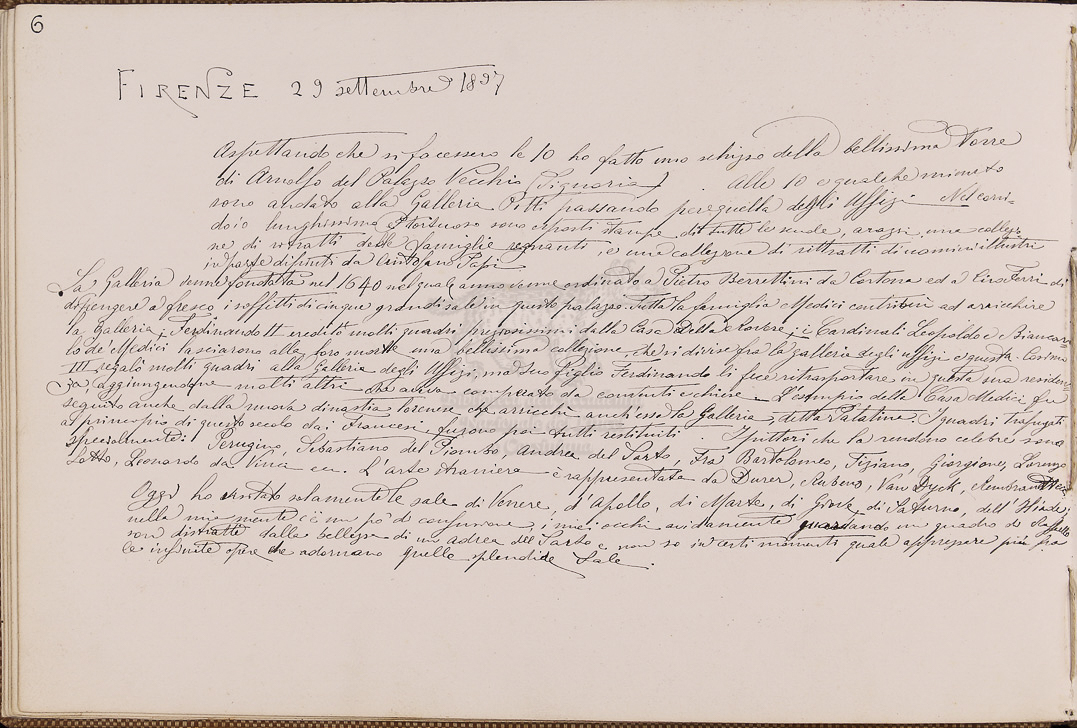 6
FIRENZE 29 settembre 1897
Aspettando che si facessero le 10 ho fatto uno schizzo della bellissima Torre
di Arnolfo del Palazzo Vecchio (Signoria). Alle 10 e qualche minuto
sono andato alla Galleria Pitti passando per quella degli Uffizi. Nel corri-
doio lunghissimo e tortuoso sono esposti stampe di tutte le scuole, arazzi, una collezio
ne di ritratti delle famiglie regnanti, e una collezione di rittratti di uomini illustri
in parte dipinti da Cristofano Papi
La Galleria venne fondata nel 1640 nel quale anno venne ordinato a Pietro Berrettini da Cortona ed a Ciro Ferri di
dipingere a fresco i soffitti di cinque grandi sale in questo palazzo. Tutta la famiglia Medici contribuì ad arricchire
la Galleria; Ferdinando II ereditò molti quadri preziosissimi dalla Casa Della Rovere; i Cardinali Leopoldo e Biancar
lo de' Medici lasciarono alla loro morte una bellissima collezione, che si divise fra la galleria degli uffizi e questa. Cosimo
III regalò molti quadri alla Galleria degli Uffizi, ma suo figlio Ferdinando li fece ritrasportare in questa sua residen
za aggiungendone molti altri che aveva comperato da conventi e chiese. L'esempio della Casa Medici fu
seguito anche dalla nuova dinastia lorenese che arricchì anch'essa la Galleria, detta Palatina. I quadri trafugati
al principio di questo secolo dai Francesi furono poi tutti restituiti. I pittori che la rendono celebre sono
specialmente: Perugino, Sebastiano del Piombo, Andrea del Sarto, Fra Bartolomeo, Tiziano, Giorgione, Lorenzo
Lotto, Leonardo da Vinci ecc. L'arte straniera è rappresentata da Durer, Rubens, Van Dyck, Rembrandt
Oggi ho visitato solamente le sale di Venere, d'Apollo, di Marte, di Giove, di Saturno, dell'Iliade;
nella mia mente c'è un po' di confusione, i miei occhi avidamente guardando un quadro di Raffaello
son distratti dalla bellezza di un Andrea del Sarto e non so in certi momenti quale apprezzare più fra
le infinite opere che adornano quelle splendide Sale.